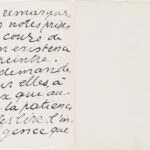 remarques,
notes prises
cours de
existence
peintre.
demande
elles à
x qui au-
la patience
les lire l'in-
gence que